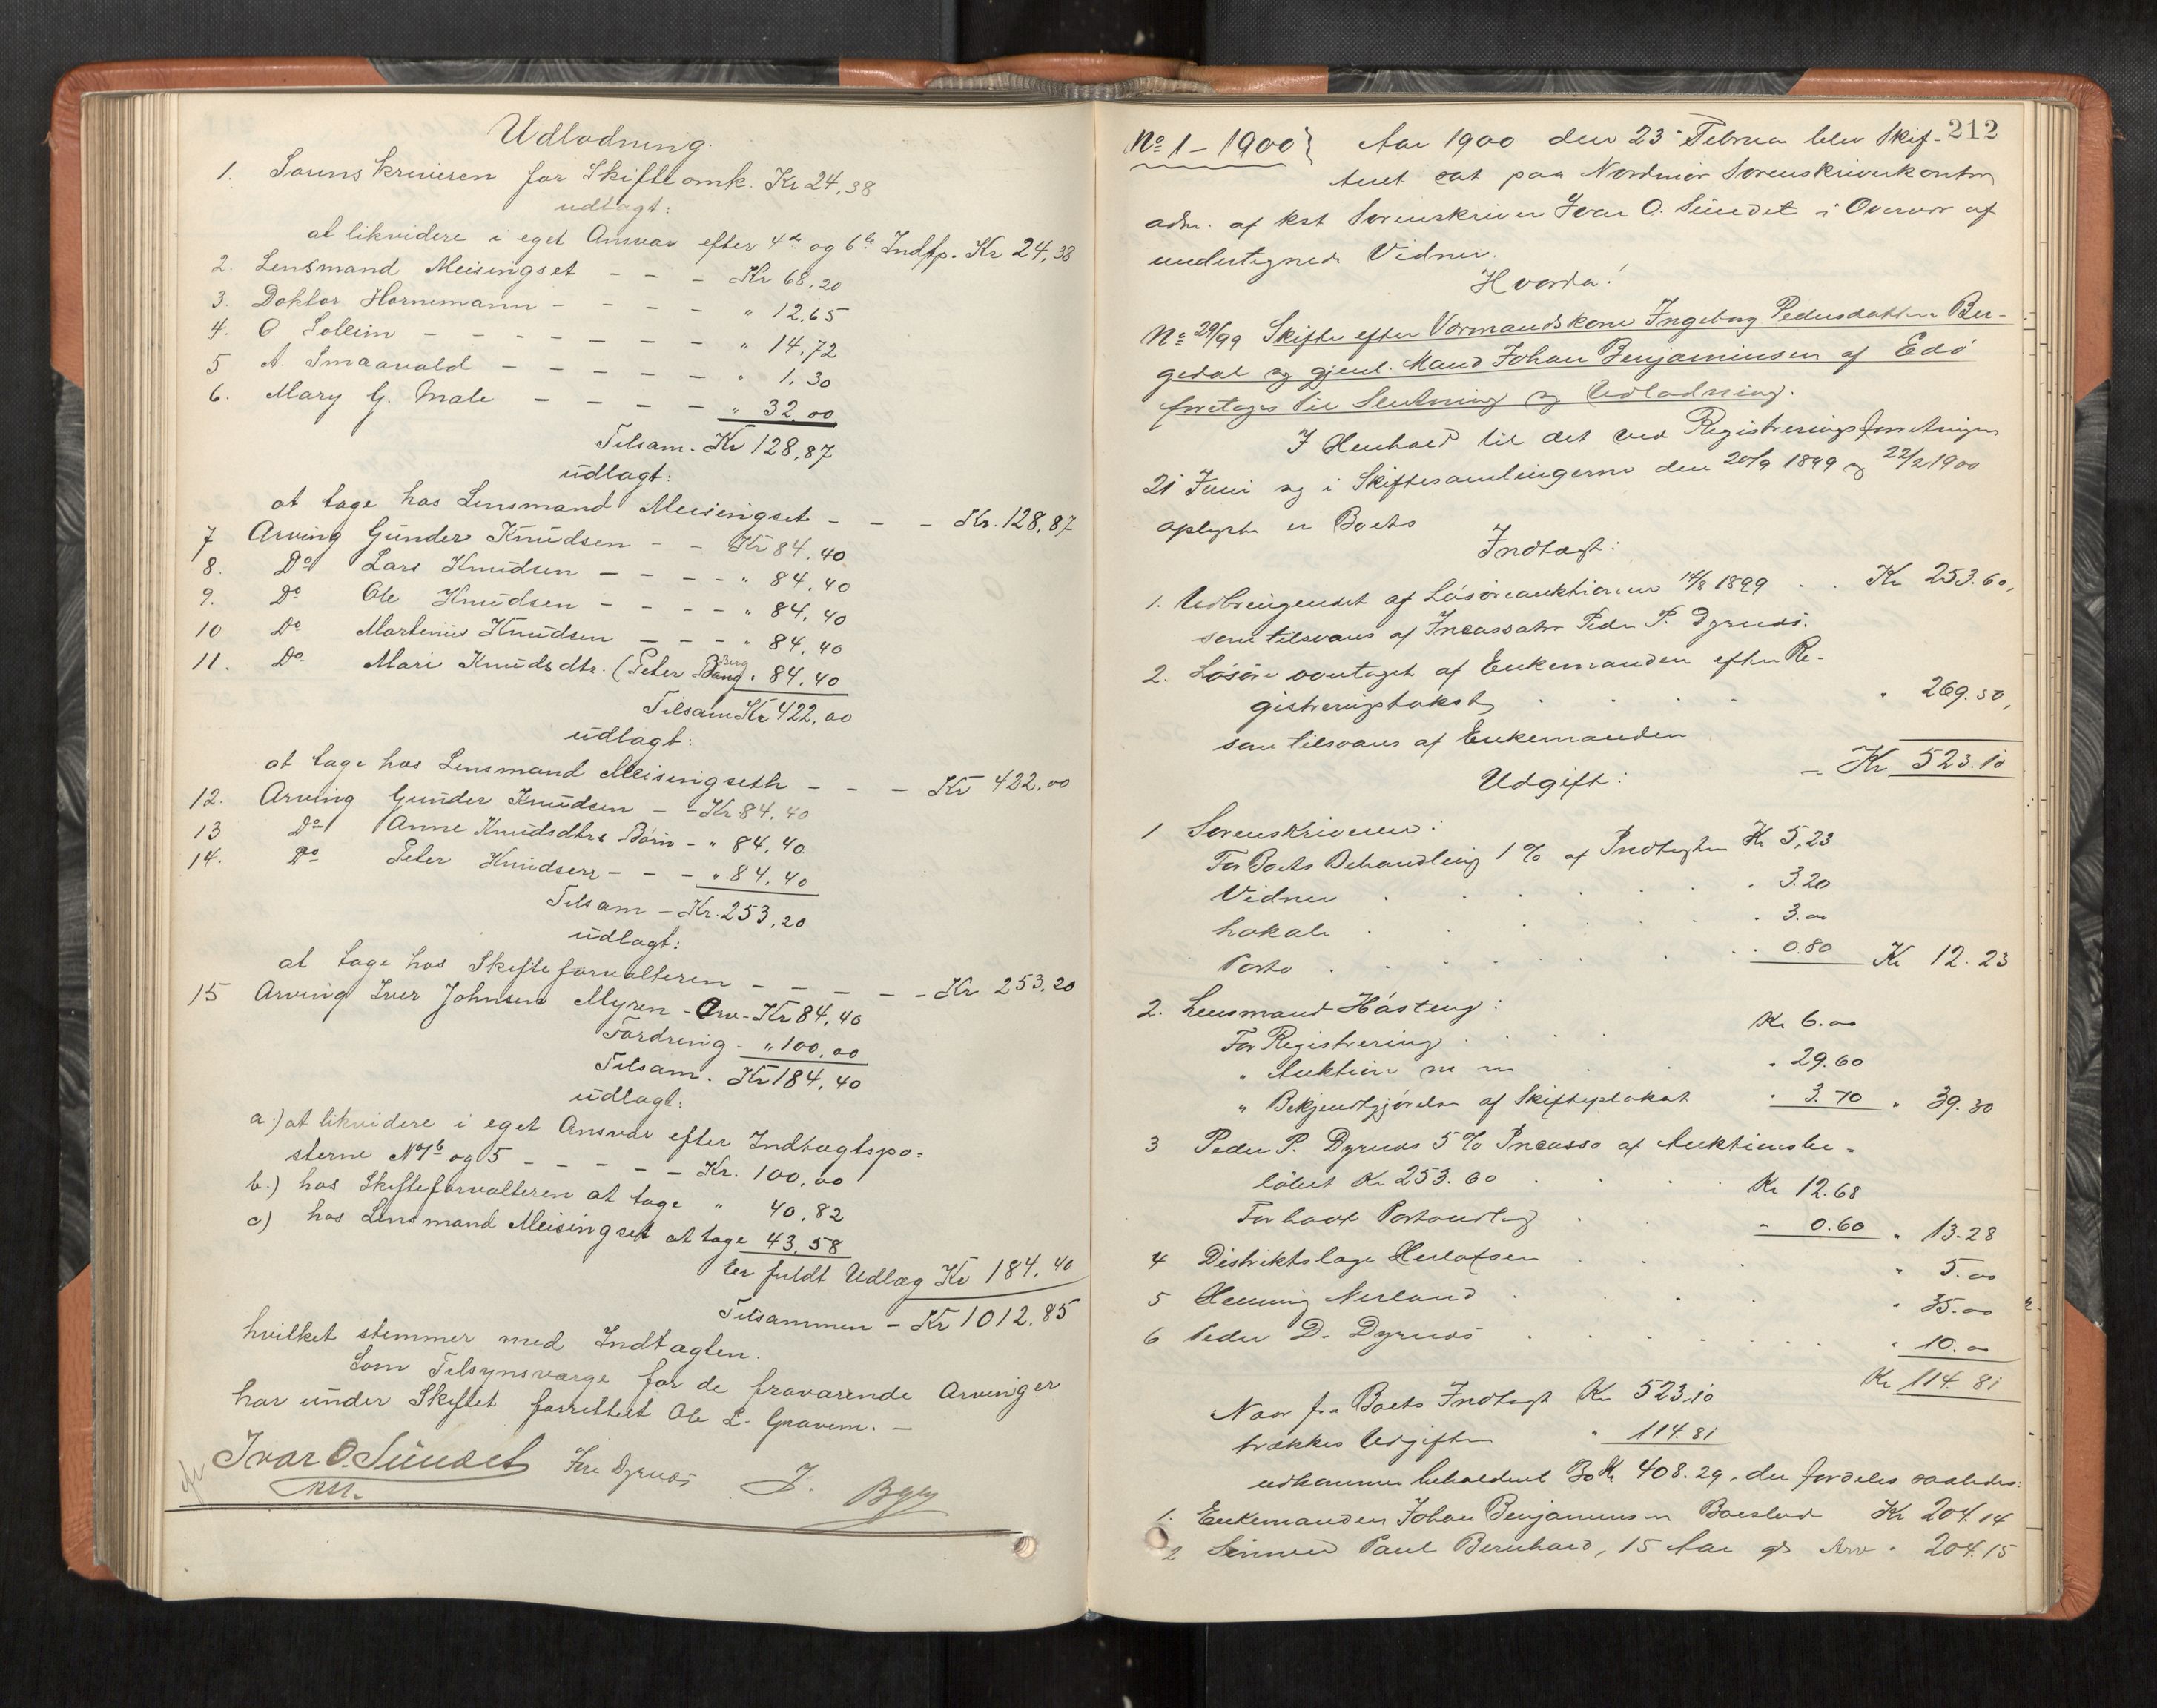 Udlodning.
1. Sorenskriveren for Skifteomk. Kr 24,38
udlagt:
at likvidere i eget Ansvar efter 4de og 6te Indtp. Kr 24,38
2. Lensmand Meisingset - - - Kr 68,20
3. Doktor Hornemann - - - - " 12,65
4. O. Solein - - - - - - - " 14,72
5 A. Smaavold - - - - - - " 1,30
6. Mary G. Male - - - - " 32,00
Tilsam. Kr 128,87
udlagt:
at tage hos Lensmand Meisingset - - - Kr. 128,87
7 Arving Gunder Knudsen - - Kr 84,40
8. Do Lars Knudsen - - - - " 84,40
9. Do Ole Knudsen - - - - " 84,40
10 Do Martinus Knudsen - - - " 84,40
11. Do Mari Knudsdtr. (Peter Berg " 84,40
Tilsam Kr 422,00
udlagt:
at tage hos Lensmand Meisingseth - - - Kr 422,00
12. Arving Gunder Knudsen - - Kr 84,40
13 Do Anne Knudsdtrs Børn - " 84,40.
14. Do Peter Knudsen - - - " 84,40
Tilsam - Kr. 253,20
udlagt:
at tage hos Skifteforvalteren - - - - - Kr 253,20
15 Arving Iver Johnsen Myren - Arv - Kr 84,40
Fordring - " 100,00
Tilsam. Kr 184,40
udlagt:
a.) at likvidere i eget Ansvar efter Indtægtspo=
sterne No 1b og 5 - - - - - Kr. 100,00
b.) hos Skifteforvalteren at tage " 40,82
c) hos Lensmand Meisingset at tage 43,58
Er fuldt Udlæg Kr 184,40
Tilsammen - Kr 1012.85
hvilket stemmer med Indtægten.
Som Tilsynsværge for de fraværende Arvinger
har under Skiftet forrettet Ole L. Gravem. -
Ivar O. Sundet Iver Dyrnæs J.
kst.
212
No 1 - 1900} Aar 1900 den 23' Februar blev Skif-
teret sat paa Nordmør Sorenskriverkontor
adm. af kst Sorenskriver Ivar O. Sundet i Overvær af
undertegnede Vidner.
Hvorda!
No 29/99 Skifte efter Vormandskone Ingeborg Pedersdatter Ber-
gedal og gjenl. Mand Johan Benjaminsen af Edø
foretages til Slutning og Udlodning.
I Henhold til det ved Registreringsforretningen
21 Juni og i Skiftesamlingerne den 20/9 1899 og 22/2 1900
oplyste er Boets
Indtægt:
1. Udbringendet af Løsøreauktionen 14/8 1899 . . Kr 253.60,
som tilsvares af Incassator Peder P. Dyrnæs.
2. Løsøre overtaget af Enkemanden efter Re-
gistreringstakst . . . . " 269.50,
som tilsvares af Enkemanden
- Kr 523.10
Udgift:
1 Sorenskriveren:
For Boets Behandling 1 % af Indtægten Kr 5,23
Vidner . . . . . " 3.20
Lokale . . . . . " 3.00
Porto . . . . . " 0.80 Kr 12.23
2. Lensmand Hasteng:
For Registrering . . . Kr 6.00
" Auktion m m . . " 29.60
" Bekjendtgjørelse af Skifteplakat " 3.70 " 39.30
3 Peder P. Dyrnæs 5 % Incasso af Auktionsbe-
løbet Kr 253.60 . . . Kr 12.68
Forhaod Portoudlæg . . " 0.60 " 13.28
4 Distriktslæge Herlofsen . . . " 5.00
5 Henning Nerland . . . . " 35.00
6 Peder D. Dyrnæs . . . . . " 10.00
Kr 114.81
Naar fra Boets Indtægt Kr 523,10
trækkes Udgiften " 114.81
udkommer beholdent Bo Kr 408.29, der fordeles saaledes:
1. Enkemanden Johan Benjaminsen Boeslod Kr 204.14
2 Sønnen Paul Bernhard, 15 Aar gl Arv " 204.15